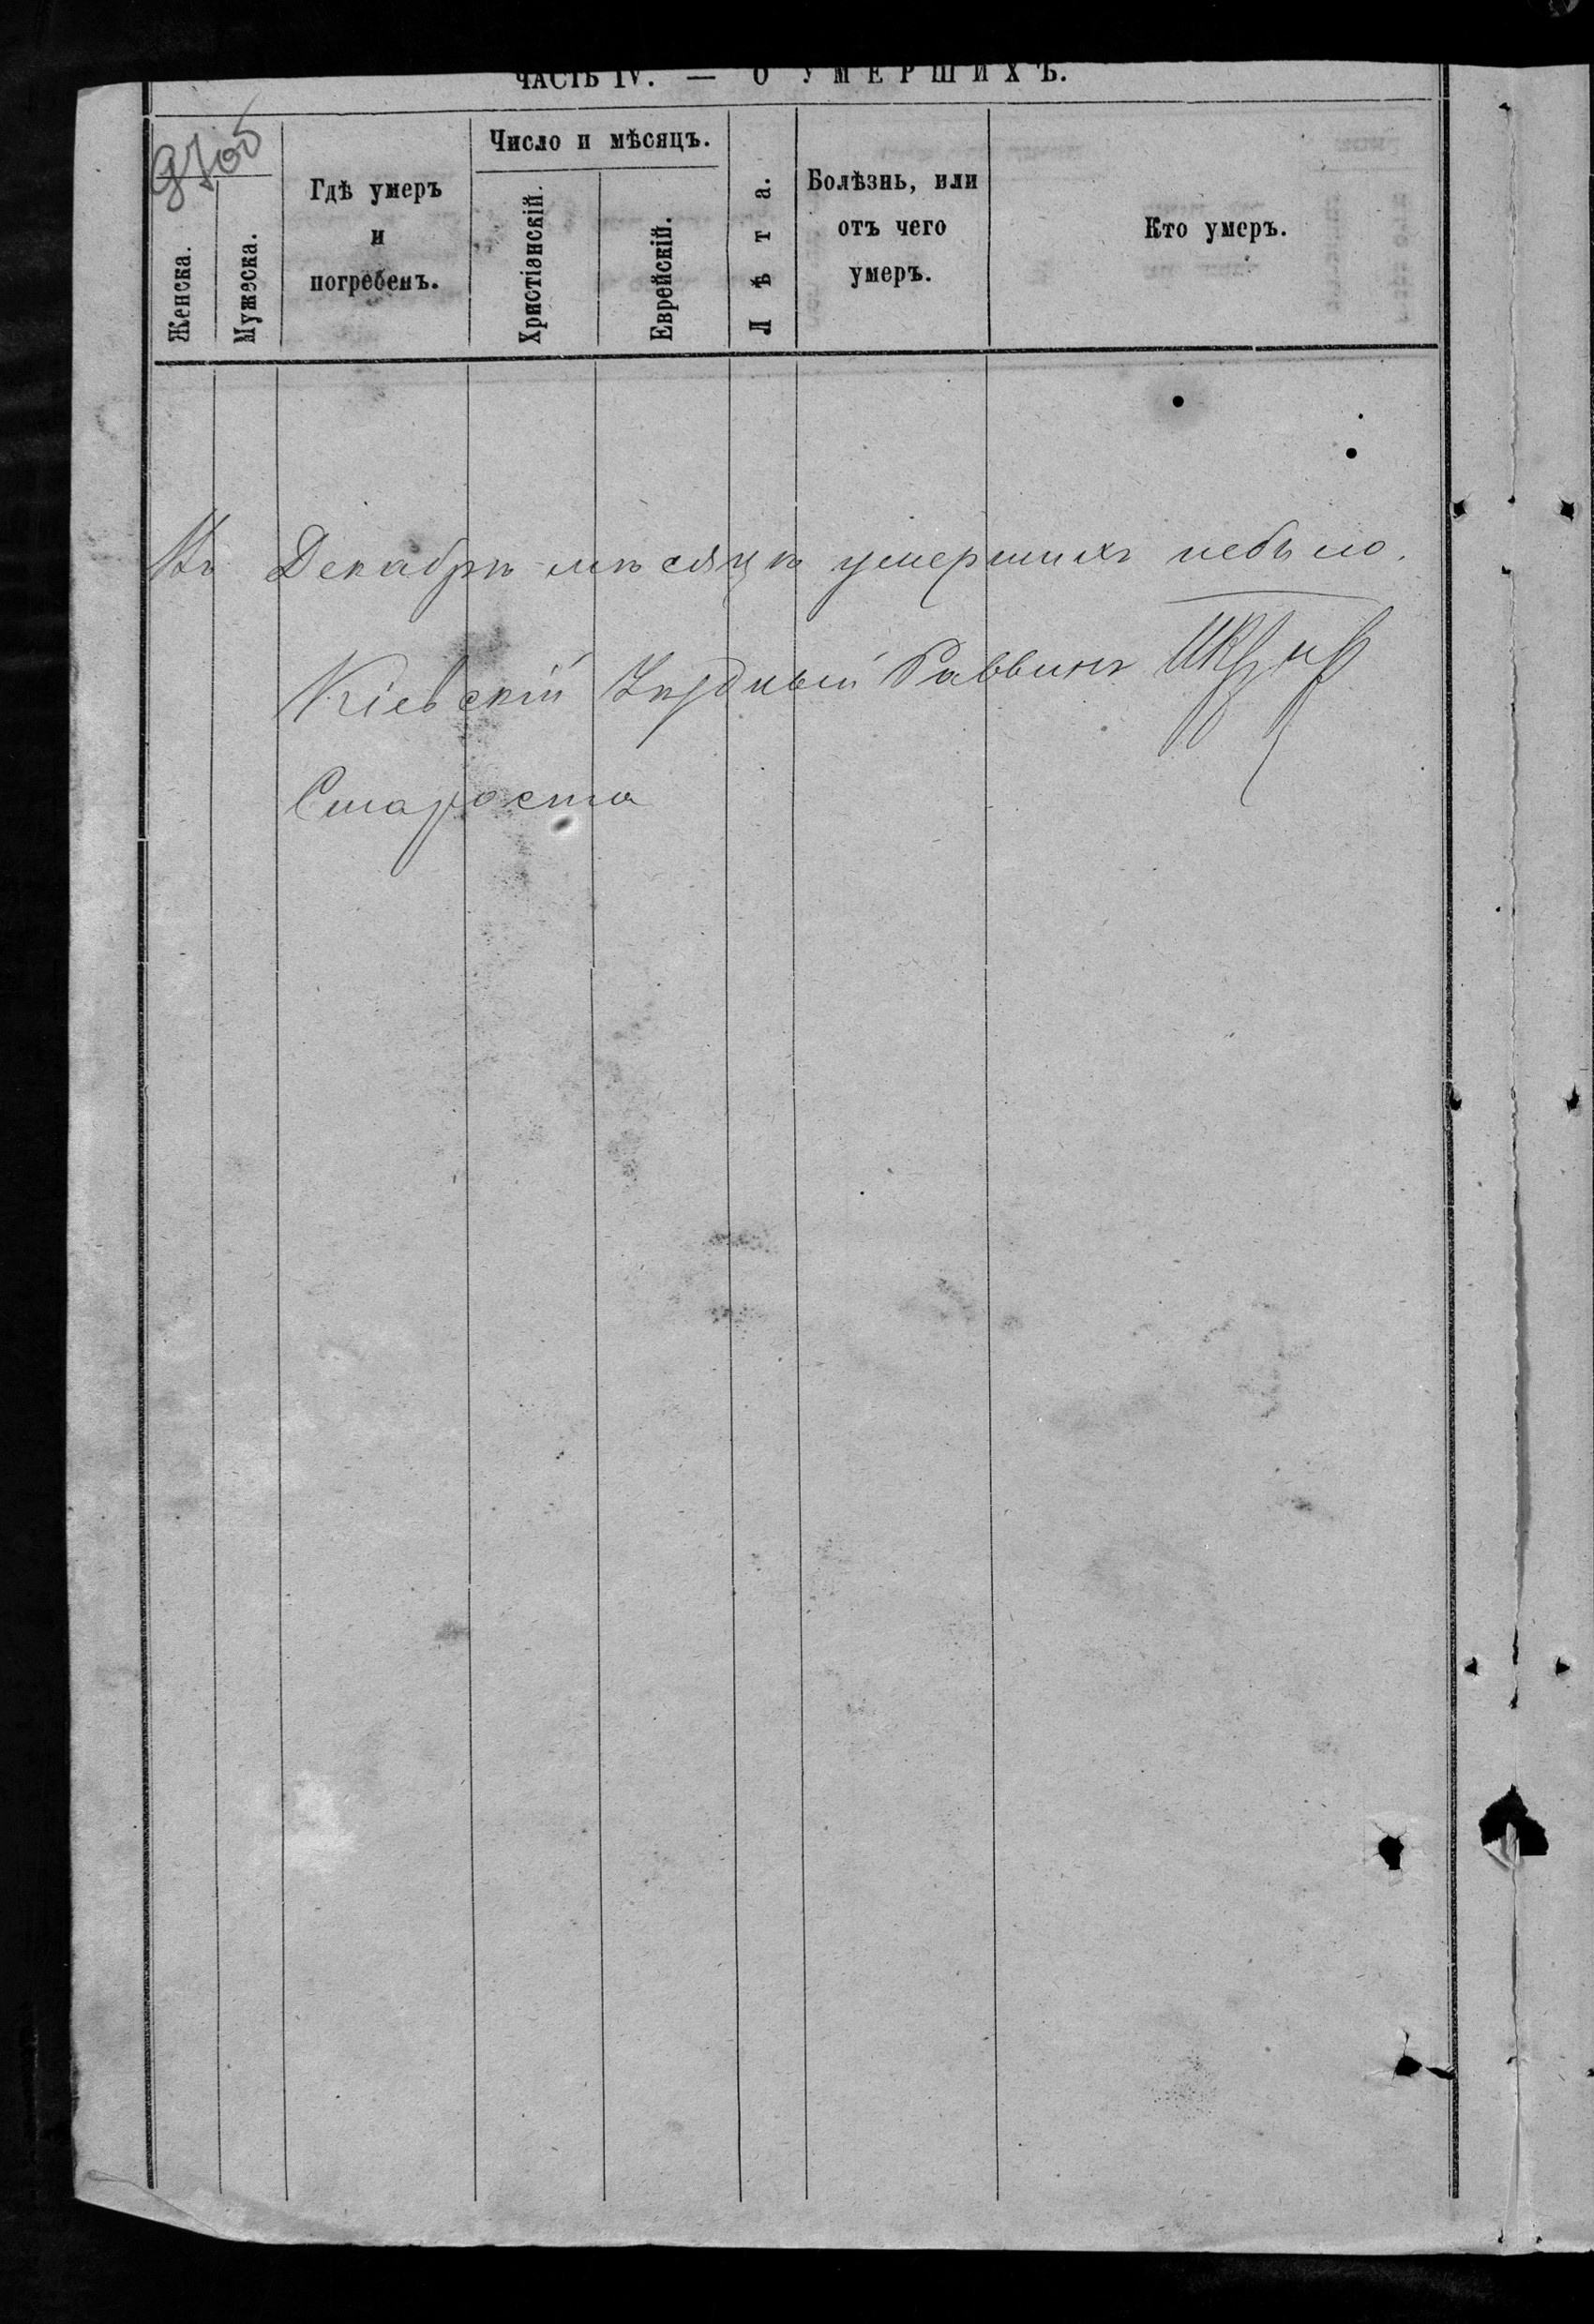 ЧАСТЬ IV. — О УМЕРШИХЪ.
Женска.
Мужеска.
Гдѣ умеръ
и
погребенъ.
Число и мѣсяцъ.
Христіанскій.
Еврейскій.
Лѣта.
Болѣзнь, или
отъ чего
умеръ.
Кто умеръ.
Въ Декабрѣ мѣсяцѣ умершихъ небыло.
Кіевскій Уѣздный Раввинъ
Староста